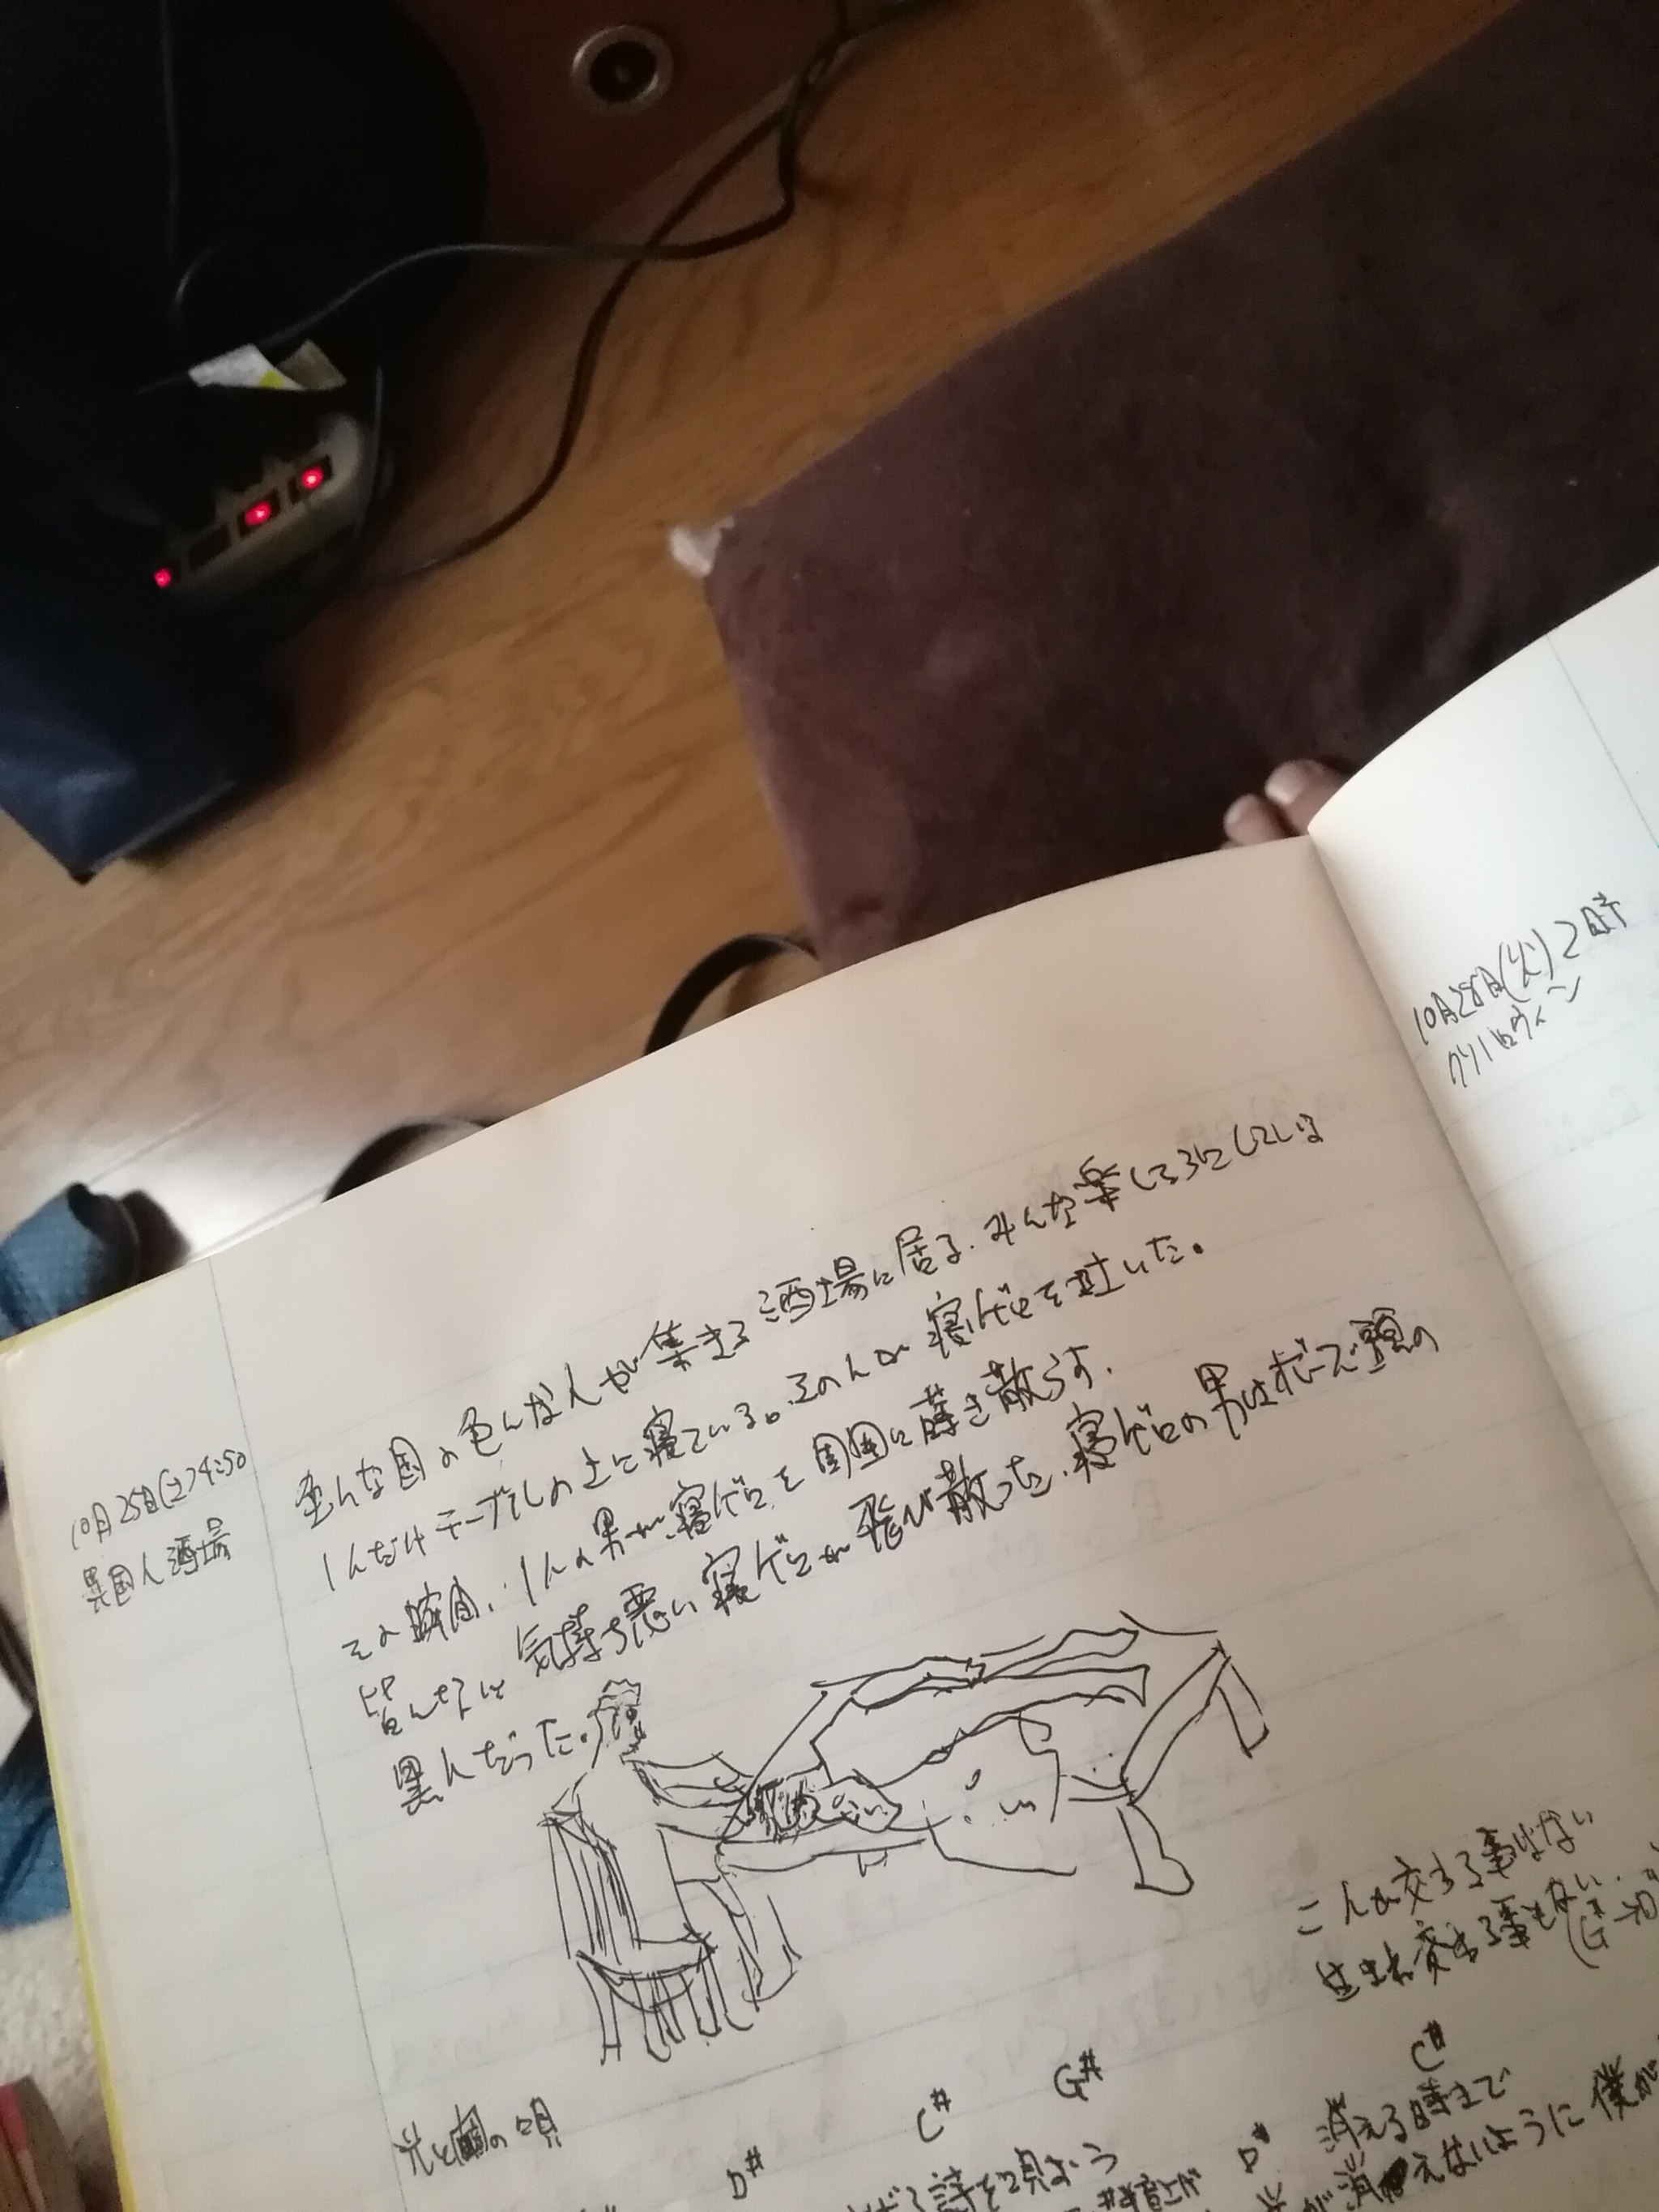 10月25日(土)4:50
異国人酒場
色んな国の色んな人が集まる酒場に居る。みんな楽しそうにしている
1人だけテーブルの上に寝ている。その人が寝ゲロを吐いた。
その瞬間、1人の男が寝ゲロを周囲に蒔き散らす。
皆んなに気持ち悪い寝ゲロが飛び散った。寝ゲロの男はボーズ頭の
黒人だった。
10月28日(火)2時
こんな交わる事はない
交わる事もない。
光と闇の唄
C# G# C#
D# D# 消える時まで
詩を唄おう
消えないように僕が